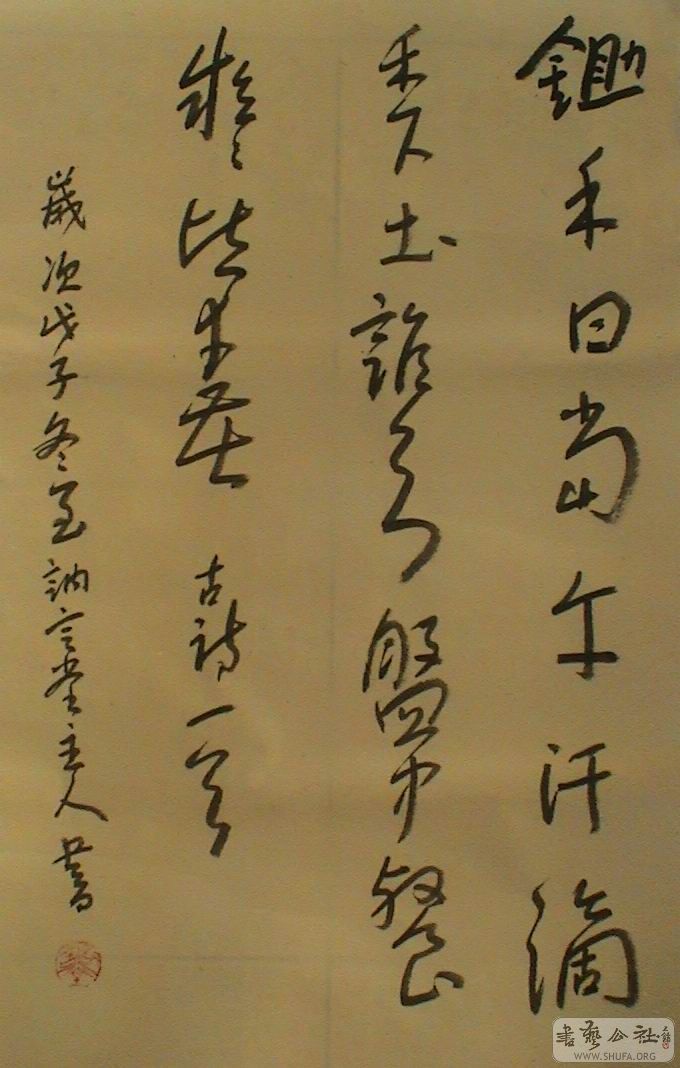 鋤禾日當午汗滴
禾下土誰知盤中餐
粒々皆辛苦 古詩一首
歲次戊子冬至訥言堂主人書
書藝公社
WWW.SHUFA.ORG